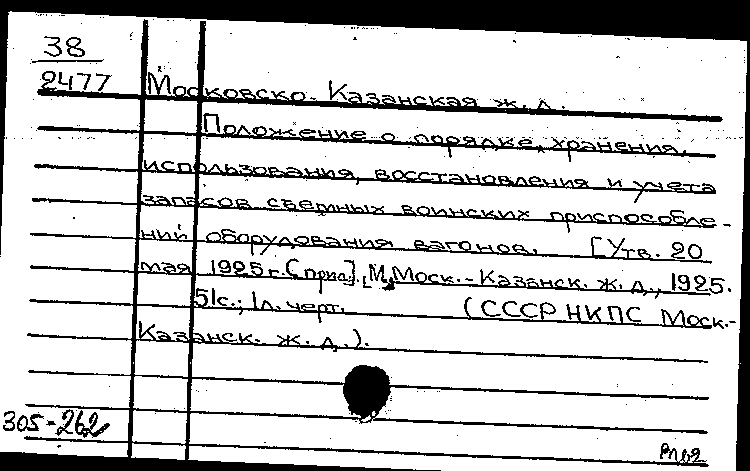 38
2477 Московско-Казанская ж. д.
Положение о порядке хранения,
использования, восстановления и учета
запасов съемных воинских приспособле-
ний оборудования вагонов. [Утв. 20
мая 1925 г. [М.], Моск.-Казанск. ж. д., 1925.
51с.; 1л. черт. (СССР НКПС Моск.-
Казанск. ж. д.).
305-262